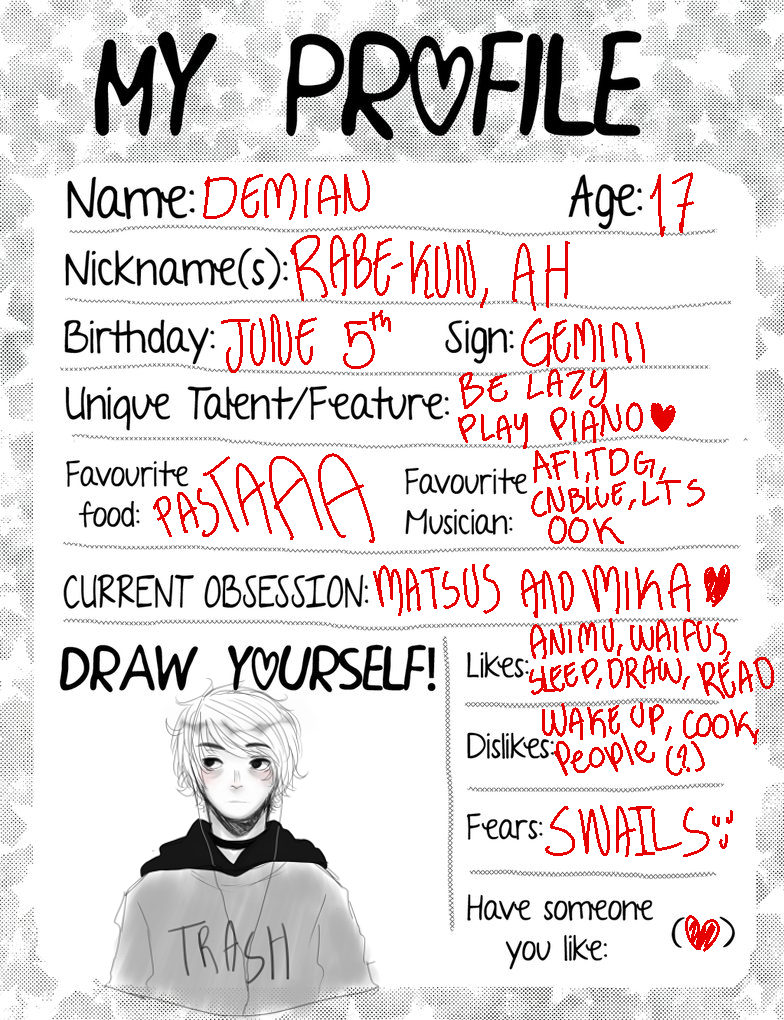 MY PROFILE
Name: DEMIAN Age: 17
Nickname(s): RABE-KUN, AH
Birthday: JUNE 5th Sign: GEMINI
Unique Talent/Feature: BE LAZY
PLAY PIANO
Favourite food: PASTAAA
Favourite Musician: AFI, TDG,
CNBLUE, LTS
OOK
CURRENT OBSESSION: MATSUS AND MIKA
DRAW YOURSELF!
TRASH
Likes: ANIMU, WAIFUS,
SLEEP, DRAW, READ
Dislikes: WAKE UP, COOK,
People (?)
Fears: SNAILS
Have someone
you like: ( )